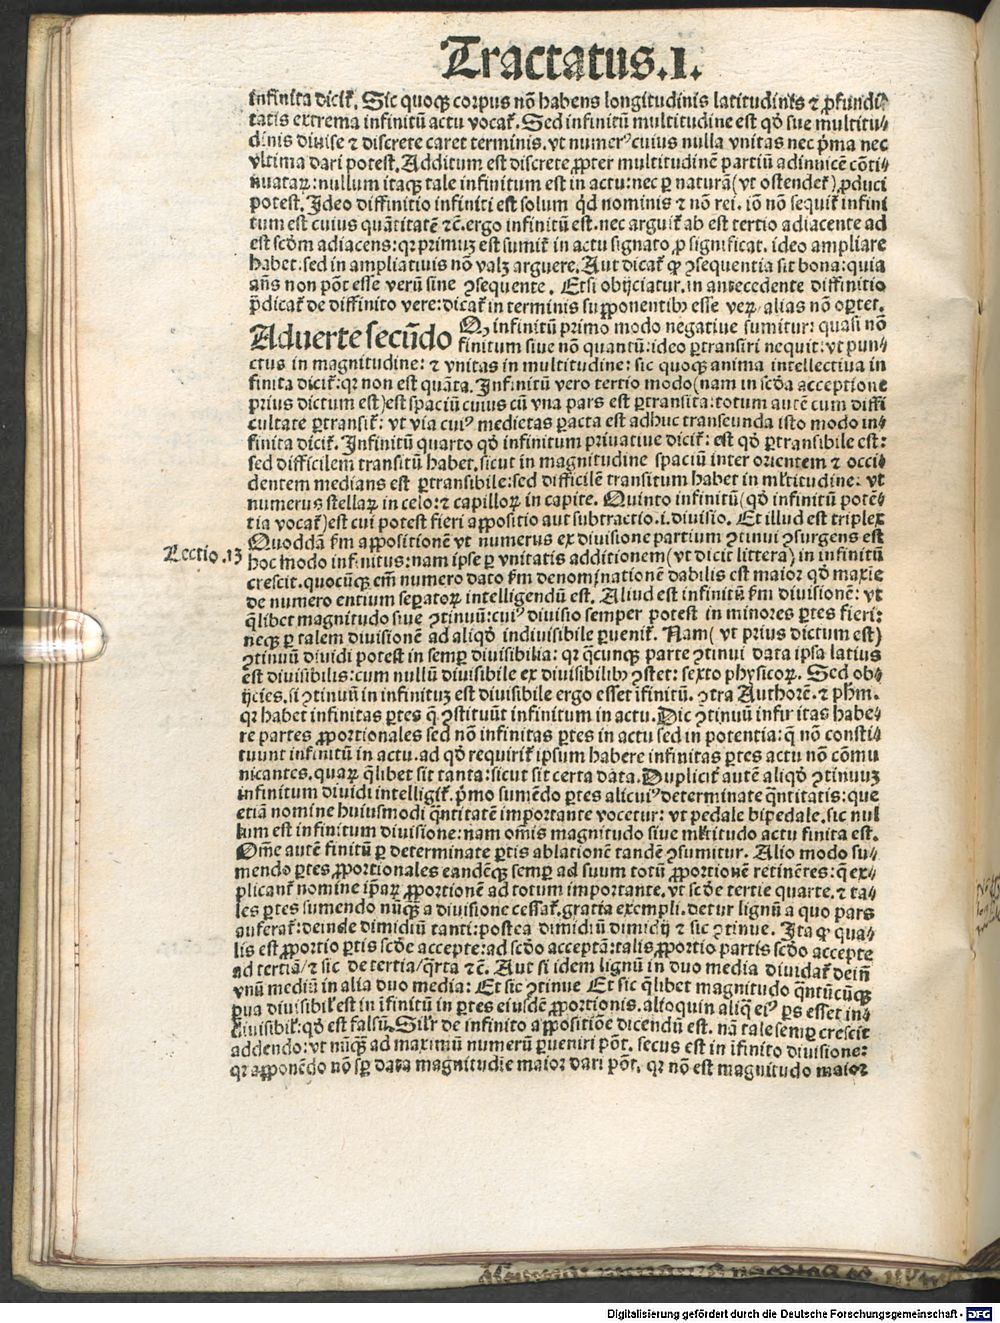 Tractatus.I.
infinita dicit᷑. Sic quoqꝫ corpus nõ habens longitudinis latitudinis ⁊ ꝓfundi⸗
tatis extrema infinitũ actu vocat᷑. Sed infinitũ multitudine est qđ siue multitu⸗
dinis diuise ⁊ discrete caret terminis. vt numerꝰ cuius nulla vnitas nec p̃ma nec
vltima dari potest. Additum est discrete ꝓpter multitudinẽ partiũ adinuicẽ cõti⸗
nuataꝝ: nullum itaqꝫ tale infinitum est in actu: nec ꝑ naturã (vt ostendet᷑) ꝓduci
potest. Ideo diffinitio infiniti est solum qđ nominis ⁊ nõ rei. iõ nõ sequit᷑ infini
tum est cuius quãtitatẽ ⁊č. ergo infinitũ est. nec arguit᷑ ab est tertio adiacente ad
est scđm adiacens: qꝛ primuꝫ est sumit᷑ in actu signato, ꝓ significat. ideo ampliare
habet. sed in ampliatiuis nõ valꝫ arguere. Aut dicat᷑ ꝙ ꝯsequentia sit bona: quia
añs non põt esse verũ sine ꝯsequente. Etsi obijciatur. in antecedente diffinitio
p̃dicat᷑ de diffinito vere: dicat᷑ in terminis supponentibꝰ esse veꝝ/ alias nõ oꝑtet.
Aduerte secũdo Qꝫ infinitũ primo modo negatiue sumitur: quasi nõ
finitum siue nõ quantũ: ideo ꝑtransiri nequit: vt pun⸗
ctus in magnitudine: ⁊ vnitas in multitudine: sic quoqꝫ anima intellectiua in
finita dicit᷑: qꝛ non est quãta. Infinitũ vero tertio modo (nam in scđa acceptione
prius dictum est) est spaciũ cuius cũ vna pars est ꝑtransita: totum autẽ cum diffi
cultate ꝑtransit᷑: vt via cuiꝰ medietas ꝑacta est adhuc transeunda isto modo in⸗
finita dicit᷑. Infinitũ quarto qđ infinitum priuatiue dicit᷑: est qđ ꝑtransibile est:
sed difficilem transitũ habet. sicut in magnitudine spaciũ inter orientem ⁊ occi⸗
dentem medians est ꝑtransibile: sed difficilẽ transitum habet in ml̃titudine: vt
numerus stellaꝝ in celo: ⁊ capilloꝝ in capite. Quinto infinitũ (qđ infinitũ potẽ⸗
tia vocat᷑) est cui potest fieri appositio aut subtractio. i. diuisio. Et illud est triplex
Quoddã ẜm appositionẽ vt numerus ex diuisione partium ꝯtinui ꝯsurgens est
Lectio.13
hoc modo infinitus: nam ipse ꝑ vnitatis additionem (vt dicit littera) in infinitũ
crescit. quocũqꝫ em̃ numero dato ẜm denominationẽ dabilis est maior qđ maxĩe
de numero entium seꝑatoꝝ intelligendũ est. Aliud est infinitũ ẜm diuisionẽ: vt
q̃libet magnitudo siue ꝯtinuũ: cuiꝰ diuisio semper potest in minores ꝑtes fieri:
neqꝫ ꝑ talem diuisionẽ ad aliqđ indiuisibile ꝑuenit᷑. Nam (vt prius dictum est)
ꝯtinuũ diuidi potest in semꝑ diuisibilia: qꝛ q̃cunqꝫ parte ꝯtinui data ipsa latius
est diuisibilis: cum nullũ diuisibile ex diuisibilibꝰ ꝯstet: sexto physicoꝝ. Sed ob⸗
ijcies. si ꝯtinuũ in infinituꝫ est diuisibile ergo esset ĩfinitũ. ꝯtra Authorẽ. ⁊ ph̃m.
qꝛ habet infinitas ꝑtes q̃ ꝯstituũt infinitum in actu. Dic ꝯtinuũ infinitas habe⸗
re partes ꝓportionales sed nõ infinitas ꝑtes in actu sed in potentia: q̃ nõ consti⸗
tuunt infinitũ in actu. ad qđ requirit᷑ ipsum habere infinitas ꝑtes actu nõ cõmu
nicantes. quaꝝ q̃libet sit tanta: sicut sit certa data. Duplicit᷑ autẽ aliqđ ꝯtinuuꝫ
infinitum diuidi intelligit᷑. p̃mo sumẽdo ꝑtes alicuiꝰ determinate q̃ntitatis: que
etiã nomine huiusmodi q̃ntitatẽ importante vocetur: vt pedale bipedale. sic nul
lum est infinitum diuisione: nam om̃is magnitudo siue ml̃titudo actu finita est.
Om̃e autẽ finitũ ꝑ determinate ꝑtis ablationẽ tandẽ ꝯsumitur. Alio modo su⸗
mendo ꝑtes ꝓportionales eandẽqꝫ semꝑ ad suum totũ ꝓportionẽ retinẽtes: q̃ ex⸗
plicant᷑ nomine ip̃aꝝ ꝓportionẽ ad totum importante. vt scđe tertie quarte. ⁊ ta⸗
les ꝑtes sumendo nũqꝫ a diuisione cessat᷑. gratia exempli. detur lignũ a quo pars
auferat᷑: deinde dimidiũ tanti: postea dimidiũ dimidij ⁊ sic ꝯtinue. Ita ꝙ qua⸗
lis est ꝓportio ꝑtis scđe accepte: ad scđo acceptã: talis ꝓportio partis scđo accepte
ad tertiã/ ⁊ sic de tertia/ q̃rta ⁊č. Aut si idem lignũ in duo media diuidat᷑ deiñ
vnũ mediũ in alia duo media: Et sic ꝯtinue Et sic q̃libet magnitudo q̃ntũcũqꝫ
ꝑua diuisibil᷑ est in ĩfinitũ in ꝑtes eiusdẽ ꝓportionis. alioquin aliq̃ eiꝰ ꝑs esset in⸗
diuisibil᷑: qđ est falsũ. Sil᷑r de infinito appositiõe dicendũ est. nã tale semꝑ crescit
addendo: vt nũqꝫ ad maximũ numerũ ꝑueniri põt. secus est in ĩfinito diuisione:
qꝛ apponẽdo nõ sꝑ data magnitudĩe maior dari põt. qꝛ nõ est magnitudo maior
Digitalisierung gefördert durch die Deutsche Forschungsgemeinschaft - DFG